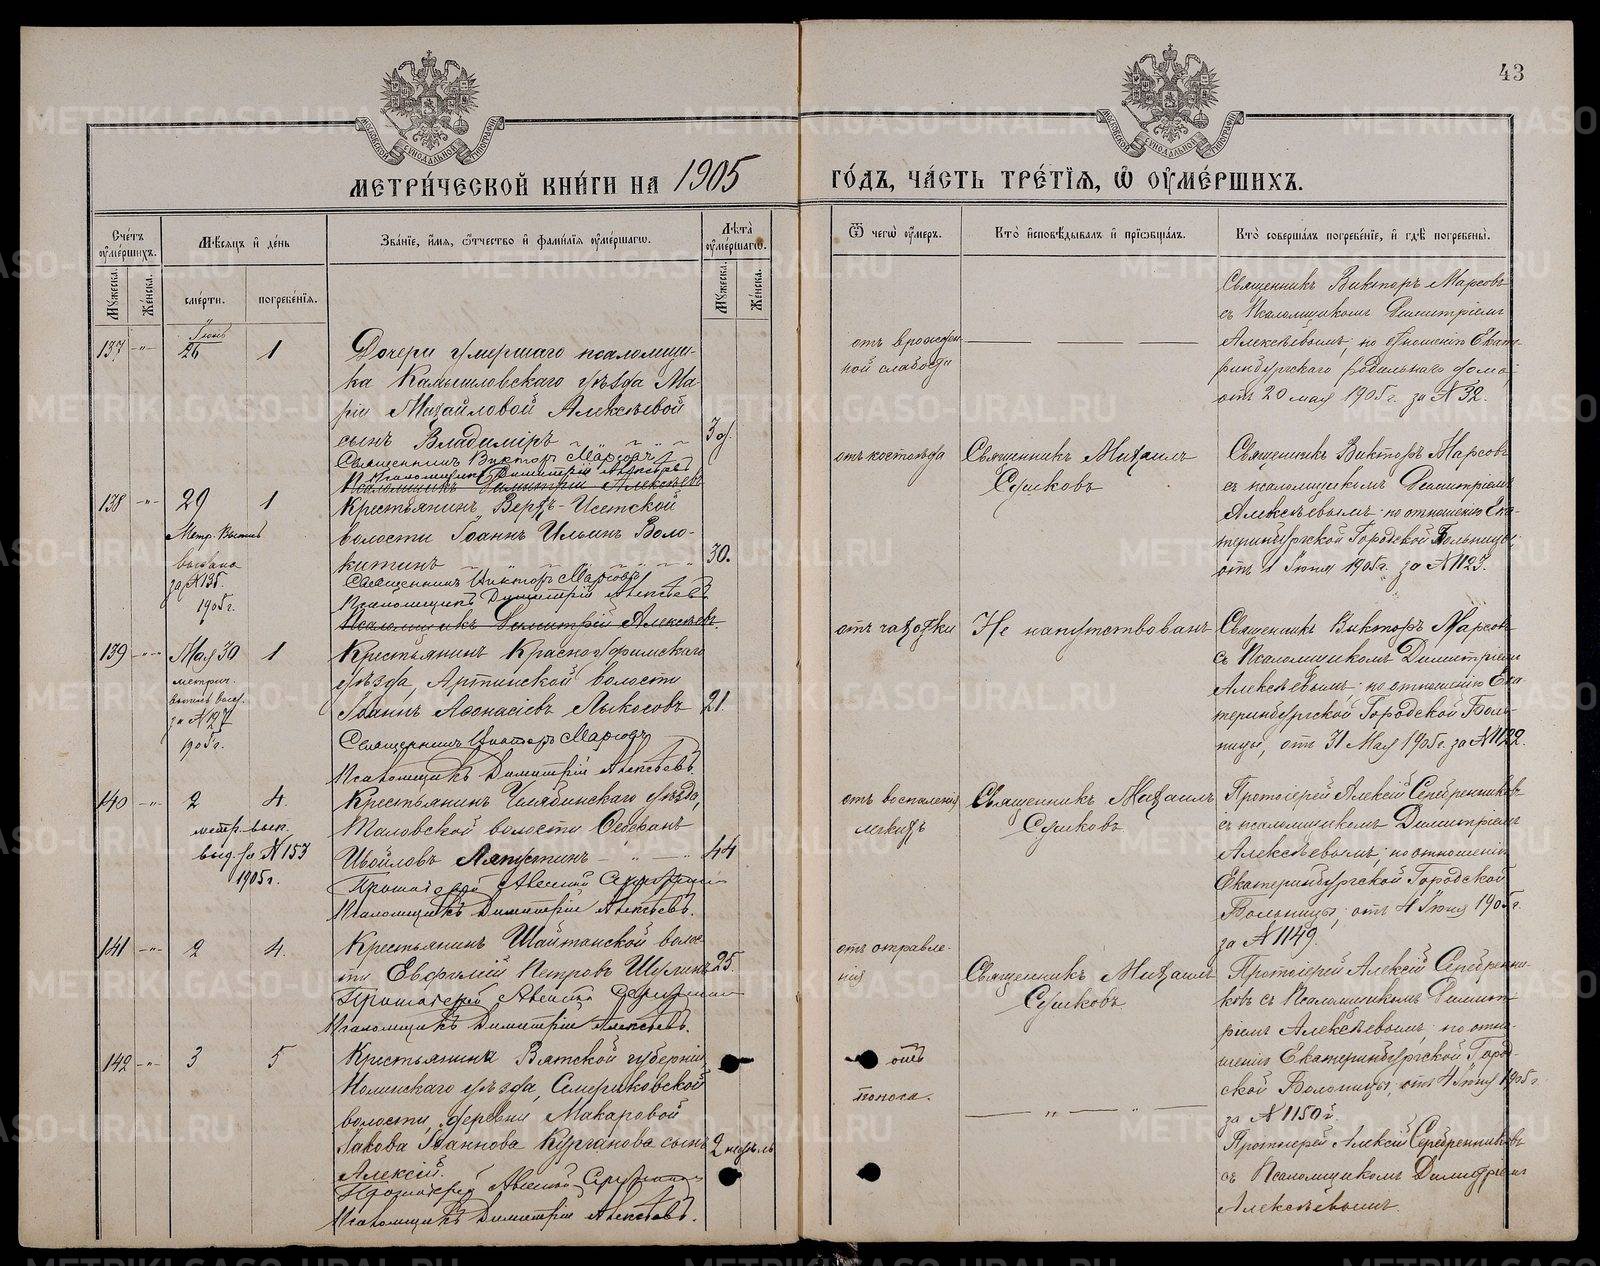 43
МЕТРИ́ЧЕСКОЙ КНИ́ГИ НА 1905
ГО́ДЪ, ЧА́СТЬ ТРЕ́ТІѦ, Ѡ ОУМЕ́РШИХЪ.
МОСКОВСКОЙ СѴНОДАЛЬНОЙ ТИПОГРАФІИ
МОСКОВСКОЙ СѴНОДАЛЬНОЙ ТИПОГРАФІИ
Сче́тъ оуме́ршихъ.
Мужеска.
Же́нска.
Мѣ́сяцъ и де́нь
сме́рти.
погребе́нїя.
Зва́нїе, и́мя, ѻ́тчество и фами́лїя оуме́ршагѡ.
Лѣта̀ оуме́ршагѡ.
Мужеска.
Же́нска.
Ѿ чегѡ̀ оу́меръ.
Кто̀ и҆сповѣ́дывалъ и҆ прїѡбща́лъ.
Кто̀ соверша́лъ погребе́нїе, и҆ гдѣ̀ погребены̀.
137 -"-
Іюнь
26 1
Дочери умершаго псаломщи-
ка Камышловскаго уѣзда Ма-
ріи Михайловой Алексѣевой
сынъ Владиміръ
3 д.
Священникъ Викторъ Марсовъ
Псаломщикъ Димитрій Алексѣевъ
Псаломщикъ Димитрій Алексѣевъ
отъ врожден-
ной слабости
Священникъ Викторъ Марсовъ
съ Псаломщикомъ Димитріемъ
Алексѣевымъ; по отношенію Екате-
ринбургскаго родильнаго дома;
отъ 20 мая 1905 г. за № 32.
138 -"- 29 1
Метр. Выпись
выдана
за № 135.
1905 г.
Крестьянинъ Верхъ-Исетской
волости Іоаннъ Ильинъ Воло-
китинъ
30.
Священникъ Викторъ Марсовъ
Псаломщикъ Димитрій Алексѣевъ
Псаломщикъ Димитрій Алексѣевъ.
отъ костоѣда
Священникъ Михаилъ
Сушковъ
Священникъ Викторъ Марсовъ
съ псаломщикомъ Димитріемъ
Алексѣевымъ; по отношенію Ека-
теринбургской Городской Больницы;
отъ 1 Іюня 1905 г. за № 1123.
139 -"- Мая 30 1
метрич.
выпись выд.
за № 127
1905 г.
Крестьянинъ Красноуфимскаго
уѣзда, Артинской волости
Іоаннъ Афонасіевъ Лыкосовъ
21.
Священникъ Викторъ Марсовъ
Псаломщикъ Димитрій Алексѣевъ.
отъ чахотки
Не напутствованъ
Священникъ Викторъ Марсовъ
съ Псаломщикомъ Димитріемъ
Алексѣевымъ; по отношенію Ека-
теринбургской Городской Боль-
ницы, отъ 31 Мая 1905 г. за № 1122.
140 -"- 2 4.
метр. вып.
выд. за № 153
1905 г.
Крестьянинъ Челябинскаго уѣзда,
Таловской волости Стефанъ
Лапустинъ
44
Протоіерей Алексій
Псаломщикъ Димитрій Алексѣевъ.
отъ воспаленія
легкихъ
Священникъ Михаилъ
Сушковъ
Протоіерей Алексій Серебренниковъ
съ псаломщикомъ Димитріемъ
Алексѣевымъ; по отношенію
Екатеринбургской Городской
Больницы; отъ 4 Іюня 1905 г.
за № 1149.
141 -"- 2 4.
Крестьянинъ Шайтанской волос-
ти Евфимій Петровъ Шулинъ
25.
Протоіерей Алексій
Псаломщикъ Димитрій Алексѣевъ.
отъ отравле-
нія
Священникъ Михаилъ
Сушковъ
Протоіерей Алексій Серебренни-
ковъ съ Псаломщикомъ Димит-
ріемъ Алексѣевымъ; по отно-
шенію Екатеринбургской Город-
ской Больницы, отъ 4 Іюня 1905 г.
за № 1150.
142 -"- 3 5
Крестьянина Вятской губерніи,
Нолинскаго уѣзда,
волости, деревни Макаровой
Іакова Іоаннова Курганова сынъ
Алексій.
2 недѣль
Протоіерей Алексій
Псаломщикъ Димитрій Алексѣевъ.
отъ
поноса.
Протоіерей Алексій Серебренниковъ
съ Псаломщикомъ Димитріемъ
Алексѣевымъ.
METRIKI.GASO-URAL.RU